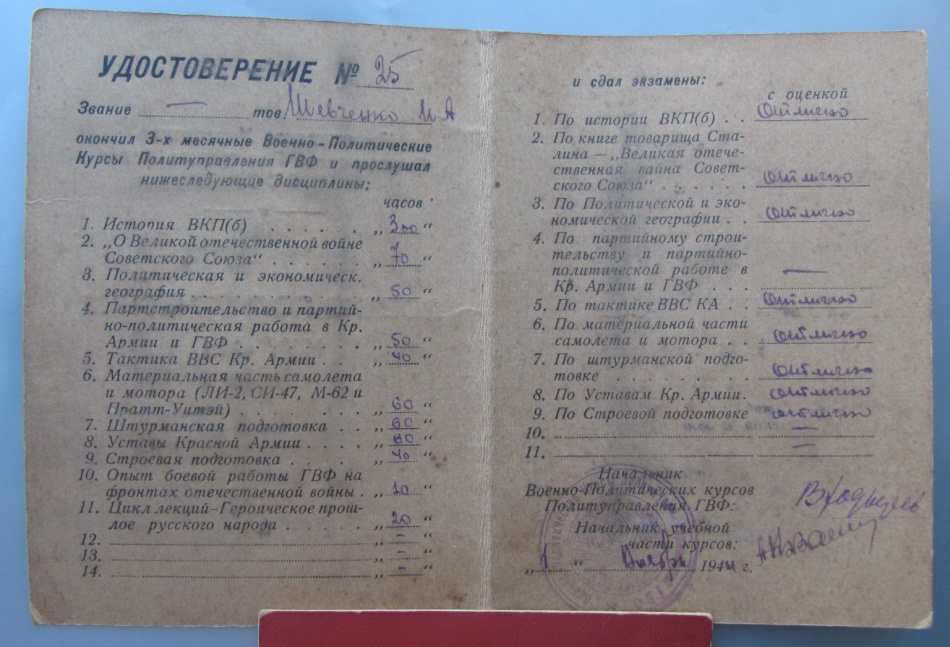 УДОСТОВЕРЕНИЕ № 25
Звание — тов Шевченко И А
окончил 3-х месячные Военно-Политические
Курсы Политуправления ГВФ и прослушал
нижеследующие дисциплины:
часов
1. История ВКП(б) . . . . . . „ 300 “
2. „О Великой отечественной войне
Советского Союза“ . . . . . . „ 70 “
3. Политическая и экономическ.
география . . . . . . . . . „ 50 “
4. Партстроительство и партий-
но-политическая работа в Кр.
Армии и ГВФ . . . . . . . „ 50 “
5. Тактика ВВС Кр. Армии . . . „ 40 “
6. Материальная часть самолета
и мотора (ЛИ-2, СИ-47, М-62 и
Пратт-Уитэй) . . . . . . . „ 60 “
7. Штурманская подготовка . . . „ 60 “
8. Уставы Красной Армии . . . . „ 60 “
9. Строевая подготовка . . . . „ 40 “
10. Опыт боевой работы ГВФ на
фронтах отечественной войны . „ 10 “
11. Цикл лекций–Героическое прош-
лое русского народа . . . . . „ 20 “
12. „ – “
13. „ – “
14. „ – “
и сдал экзамены:
с оценкой
1. По истории ВКП(б) . . отлично
2. По книге товарища Ста-
лина — „Великая отече-
ственная вайна Совет-
ского Союза“ . . . . . . отлично
3. По Политической и эко-
номической географии . . отлично
4. По партийному строи-
тельству и партийно-
политической работе в
Кр. Армии и ГВФ . . . —
5. По тактике ВВС КА . . отлично
6. По материальной части
самолета и мотора . . . отлично
7. По штурманской подго-
товке . . . . . . . . отлично
8. По Уставам Кр. Армии. отлично
9. По Строевой подготовке отлично
10. —
11. —
Начальник
Военно-Политических курсов
Политуправления ГВФ:
Начальник учебной
части курсов:
„ 1 “ Ноябрь 1944 г.